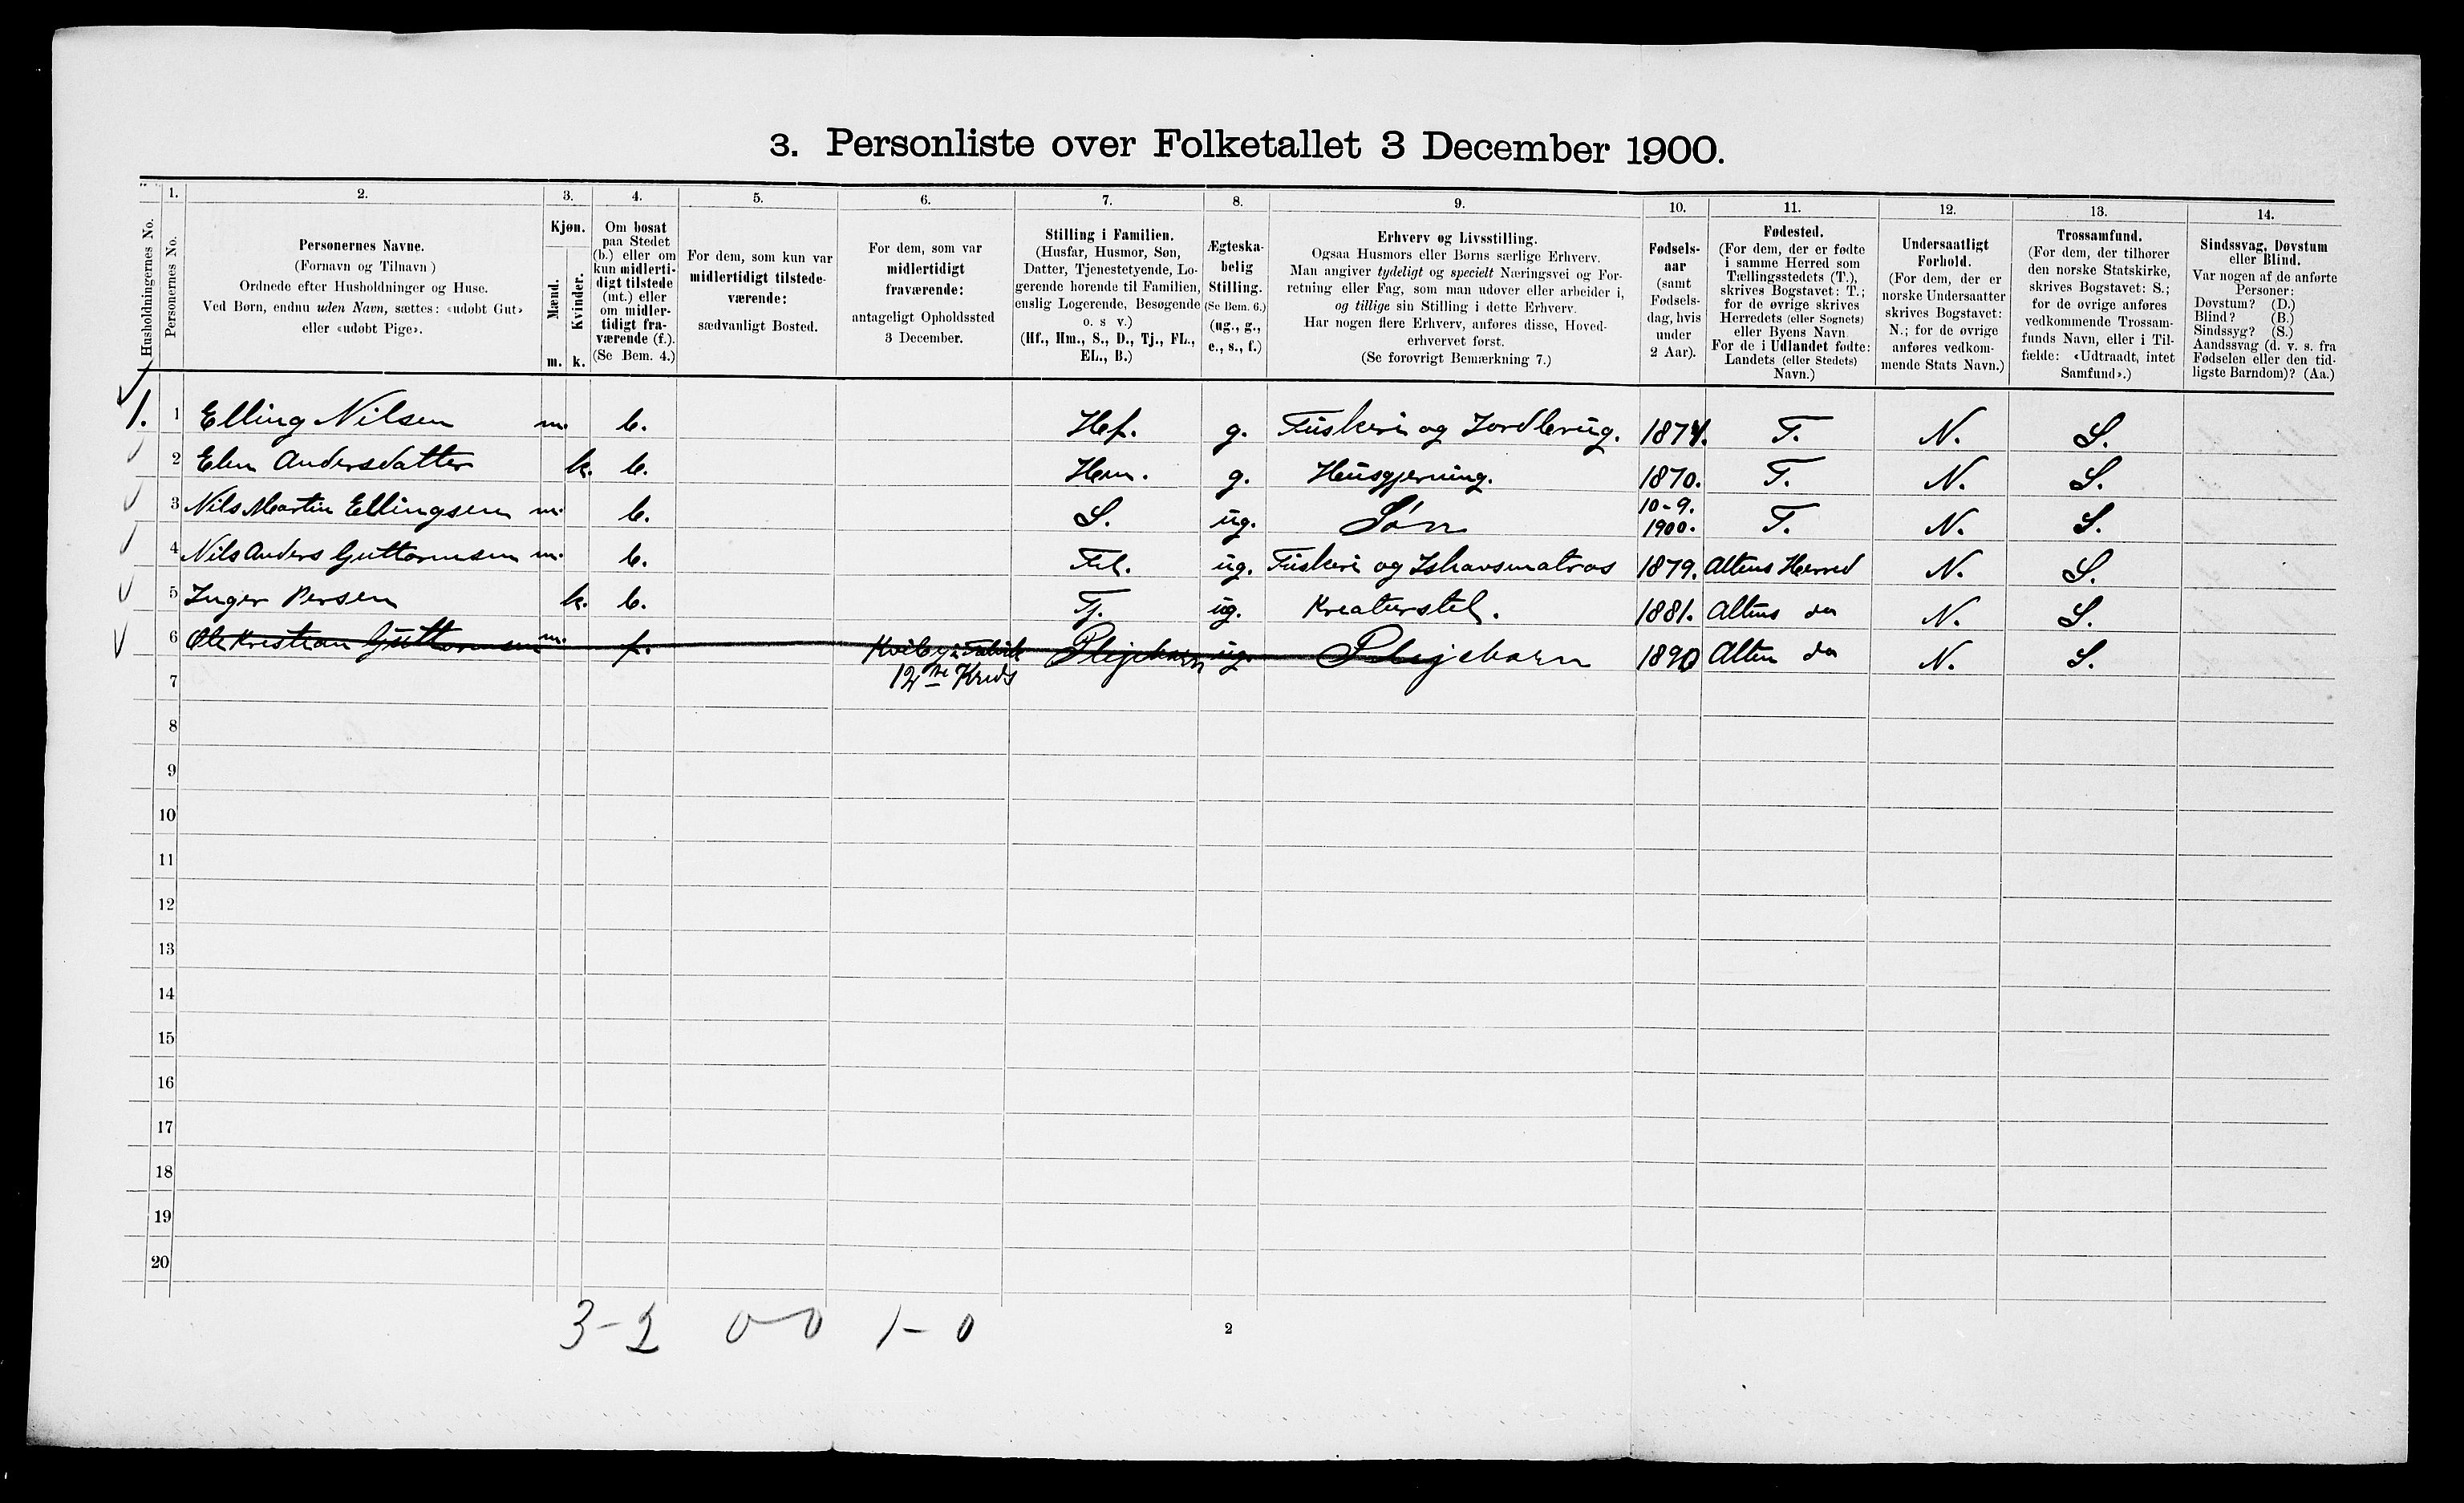 3. Personliste over Folketallet 3 December 1900.
Husholdningernes No.
1.
Personernes No.
2.
Personernes Navne.
(Fornavn og Tilnavn)
Ordnede efter Husholdninger og Huse.
Ved Børn, endnu uden Navn, sættes: «udøbt Gut»
eller «udøbt Pige».
3.
Kjøn.
Mænd.
Kvinder.
m. k.
4.
Om bosat
paa Stedet
(b.) eller om
kun midlerti-
digt tilstede
(mt.) eller
om midler-
tidigt fra-
værende (f.).
(Se Bem. 4.)
5.
For dem, som kun var
midlertidigt tilstede-
værende:
sædvanligt Bosted.
6.
For dem, som var
midlertidigt
fraværende:
antageligt Opholdssted
3 December.
7.
Stilling i Familien.
(Husfar, Husmor, Søn,
Datter, Tjenestetyende, Lo-
gerende hørende til Familien,
enslig Logerende, Besøgende
o. s v.)
(Hf., Hm., S., D., Tj., FL.,
EL., B.)
8.
Ægteska-
belig
Stilling.
(Se Bem. 6.)
(ug., g.,
e., s., f.)
9.
Erhverv og Livsstilling.
Ogsaa Husmors eller Børns særlige Erhverv.
Man angiver tydeligt og specielt Næringsvei og For-
retning eller Fag, som man udøver eller arbeider i,
og tillige sin Stilling i dette Erhverv.
Har nogen flere Erhverv, anføres disse, Hoved-
erhvervet først.
(Se forøvrigt Bemærkning 7.)
10.
Fødsels-
aar
(samt
Fødsels-
dag, hvis
under
2 Aar).
11.
Fødested.
(For dem, der er fødte
i samme Herred som
Tællingsstedets (T.),
skrives Bogstavet: T.;
for de øvrige skrives
Herredets (eller Sognets)
eller Byens Navn
For de i Udlandet fødte:
Landets (eller Stedets)
Navn.)
12.
Undersaatligt
Forhold.
(For dem, der er
norske Undersaatter
skrives Bogstavet:
N.; for de øvrige
anføres vedkom-
mende Stats Navn.)
13.
Trossamfund.
(For dem, der tilhører
den norske Statskirke,
skrives Bogstavet: S.;
for de øvrige anføres
vedkommende Trossam-
funds Navn, eller i Til-
fælde: «Udtraadt, intet
Samfund».)
14.
Sindssvag, Døvstum
eller Blind.
Var nogen af de anførte
Personer:
Døvstum? (D.)
Blind? (B.)
Sindssyg? (S.)
Aandssvag (d. v. s. fra
Fødselen eller den tid-
ligste Barndom)? (Aa.)
1. 1 Elling Nilsen m. b. Hf. g. Fiskeri og Jordbrug. 1874. T. N. S.
2 Elen Andersdatter k. b. Hm. g. Husgjerning. 1870. T. N. S.
3 Nils Martin Ellingsen m. b. S. ug. Søn 10-9. 1900. T. N. S.
4 Nils Anders Guttormsen m. b. FL. ug. Fiskeri og Ishavsmatros 1879. Altens Herred N. S.
5 Inger Persen k. b. Tj. ug. Kreaturstel. 1881. Altens do N. S.
6 Ole Kristian Guttormsen m. f. Kviby i Talvik Plejebarn ug. Plejebarn 1890 Alten do N. S.
7 12te Kreds
8
9
10
11
12
13
14
15
16
17
18
19
20
3-2 0-0 1-0
2